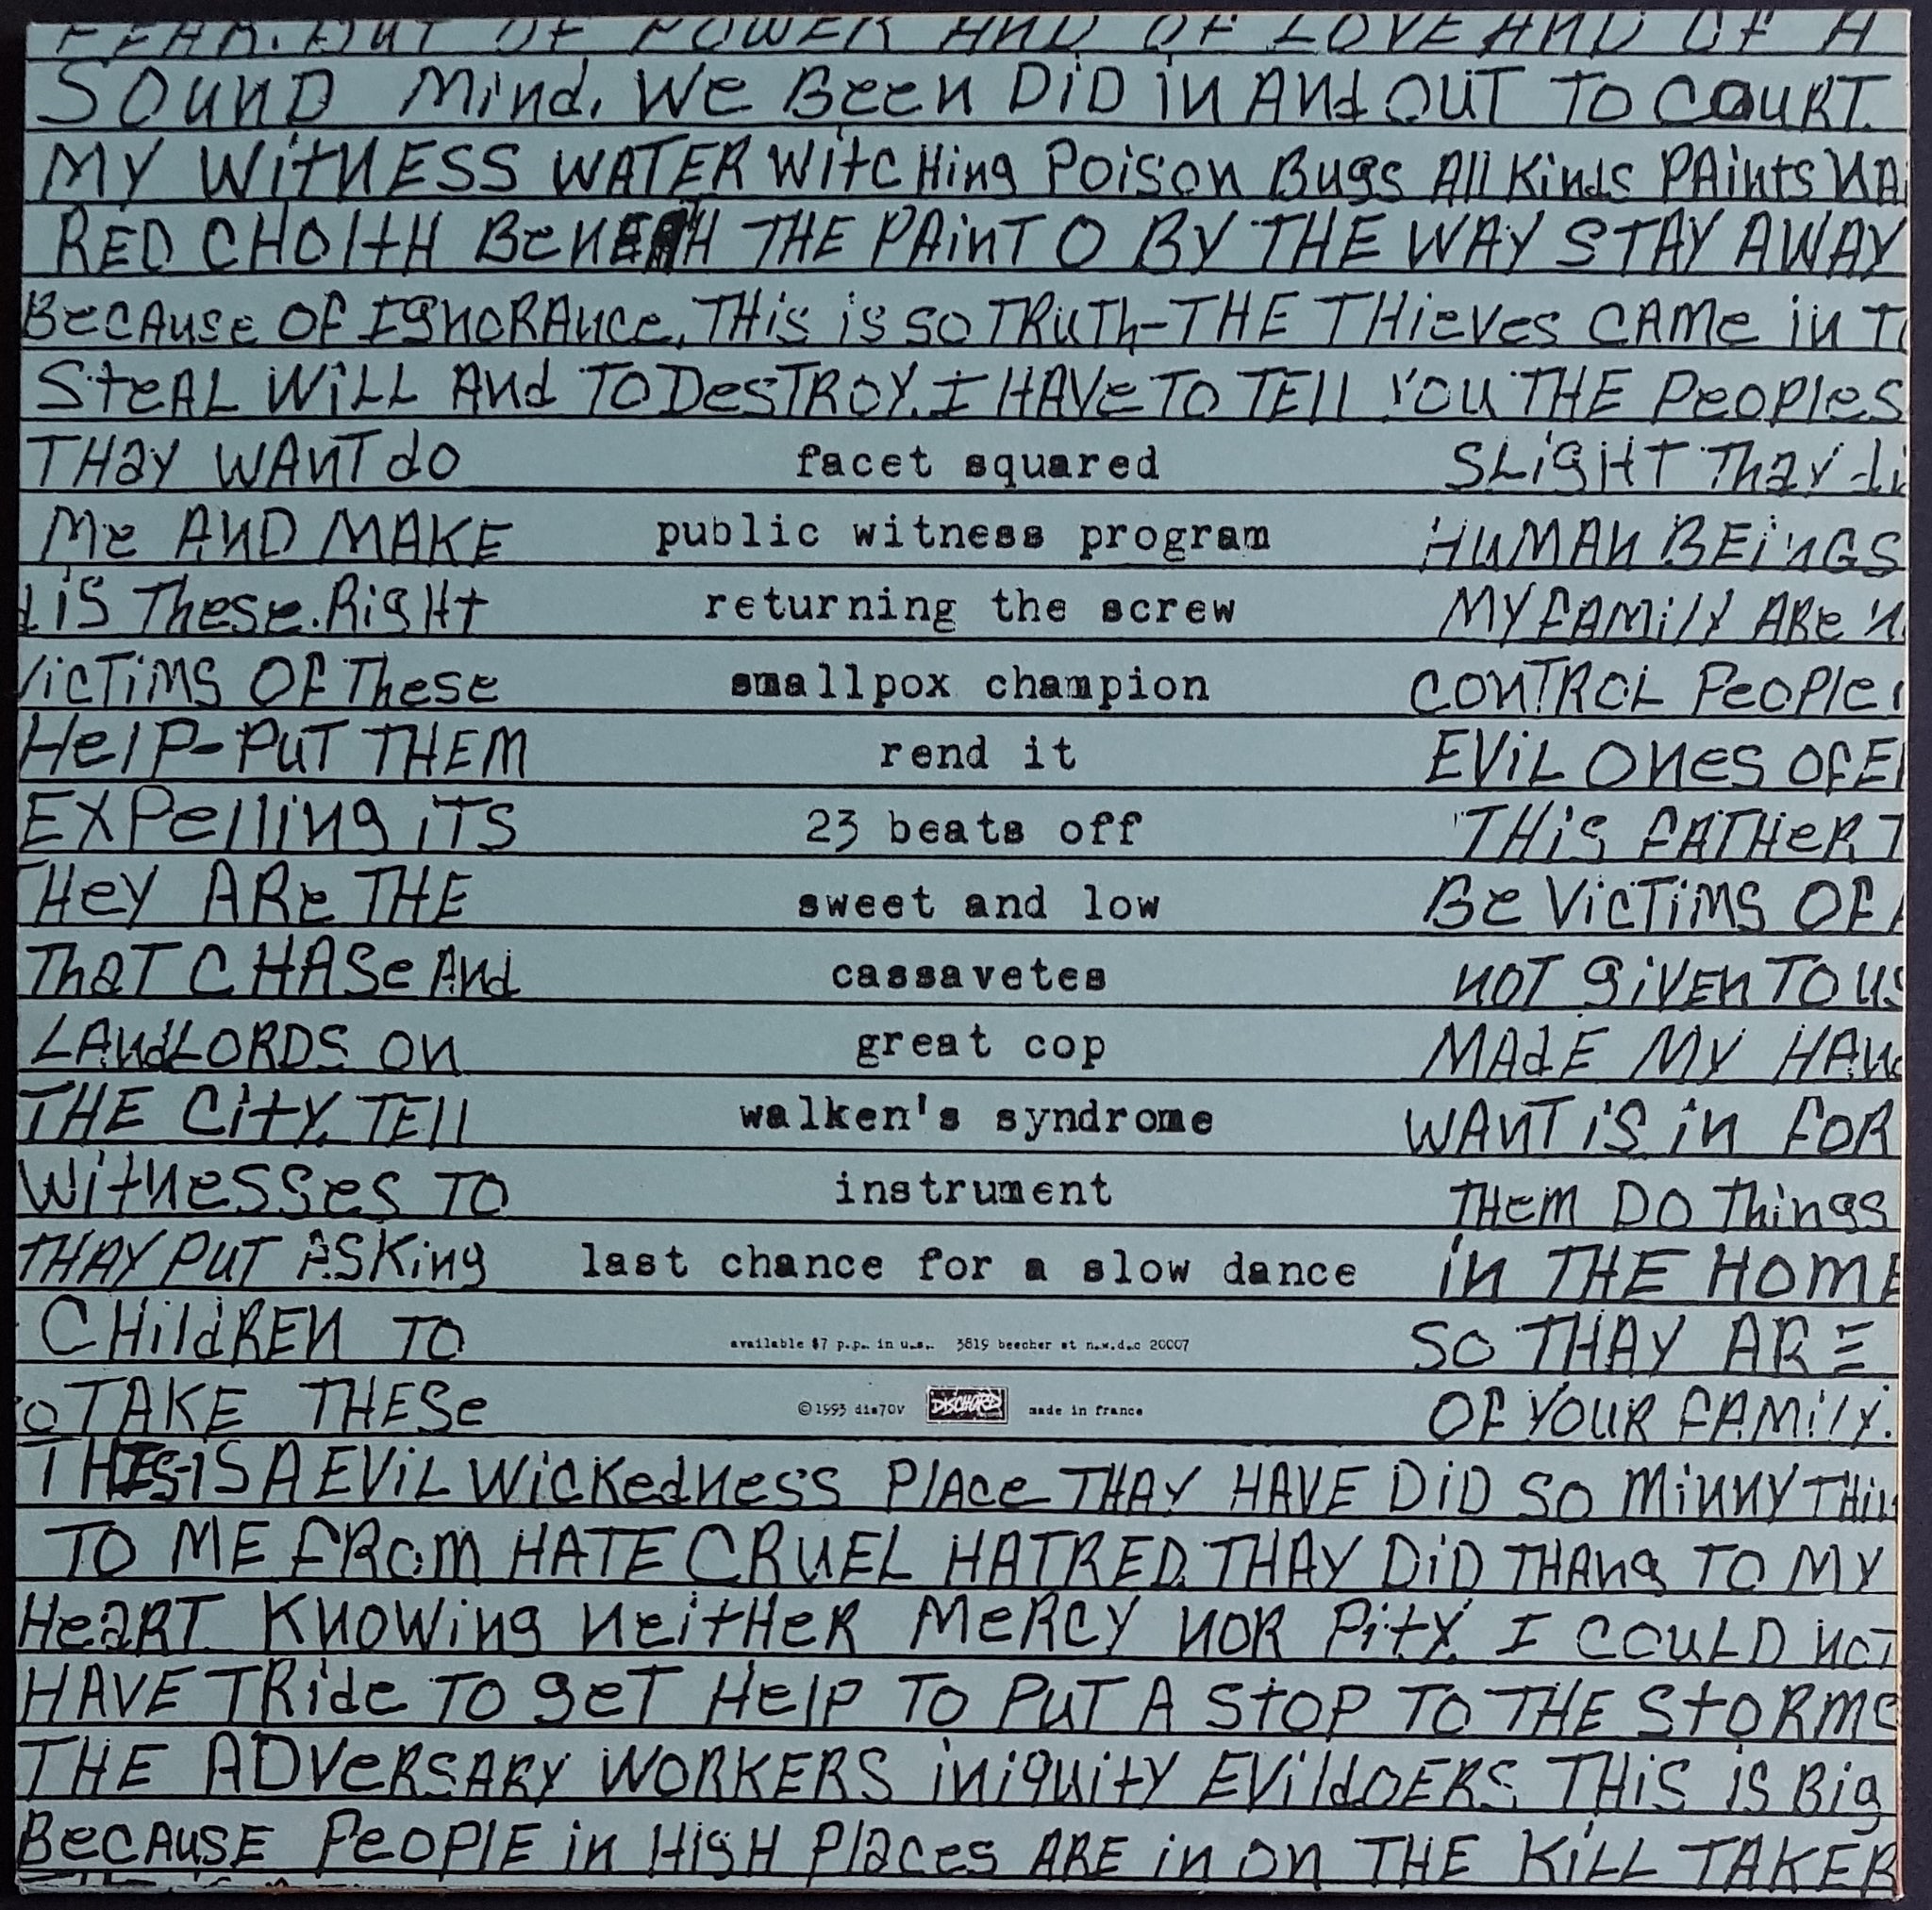 FEAR. BUT OF POWER AND OF LOVE AND OF A
SOUND Mind, We BeeN DiD iN ANd OUT TO COURT.
MY WitNESS WATER WitCHing Poison Bugs All Kinds PAints
RED CHOltH BeNEATH THE PAiNT O BY THE WAY STAY AWAY
BeCAuse OF IgNORANce, THis is so TRuTh-THE THieves CAMe iN
SteAL WiLL ANd TO DesTROY. I HAVe TO TEll YOU THE PeoPles
THaY WANT do facet squared SLigHT Thay
Me AND MAKE public witness program HUMAN BEiNGS
iS These. RigHt returning the screw MY FAMilY ARe
VicTiMS OF These smallpox champion CONTROL PeoPle
HelP-PUT THEM rend it EViL ONes OF
EXPelliNg iTS 23 beats off THiS FATHeR
THeY ARe THE sweet and low Be VicTiMS OF
ThaT CHASe ANd cassavetes NOT giVEN TO US
LANdLORDS ON great cop MAdE MY
THE CitY. TEll walken's syndrome WANT iS iN FOR
WitNesses TO instrument THEM DO Things
THAY PUT ASKing last chance for a slow dance iN THE HOME
CHildREN TO available $7 p.p. in u.s. 3819 beecher st n.w.d.c 20007 SO THAY ARE
TAKE THESe ©1993 dis70V DISCHORD made in france OF YOUR FAMilY.
THIS-iS A EViL WicKedNess PlAce THAY HAVE DiD SO MiNNY
TO ME FROM HATE CRUEL HATRED. THAY DiD THANg TO MY
HeaRT KNOWiNg NeitHeR MeRCY NOR PitY. I COULD NOT
HAVE TRide TO geT HelP TO PUT A StOP TO THE StORMS
THE ADVeRSARY WORKERS iNiquitY EVildOERS THiS iS Big
BeCAUSE PeoPlE iN HigH Places ARE iN ON THE KiLL TAKER